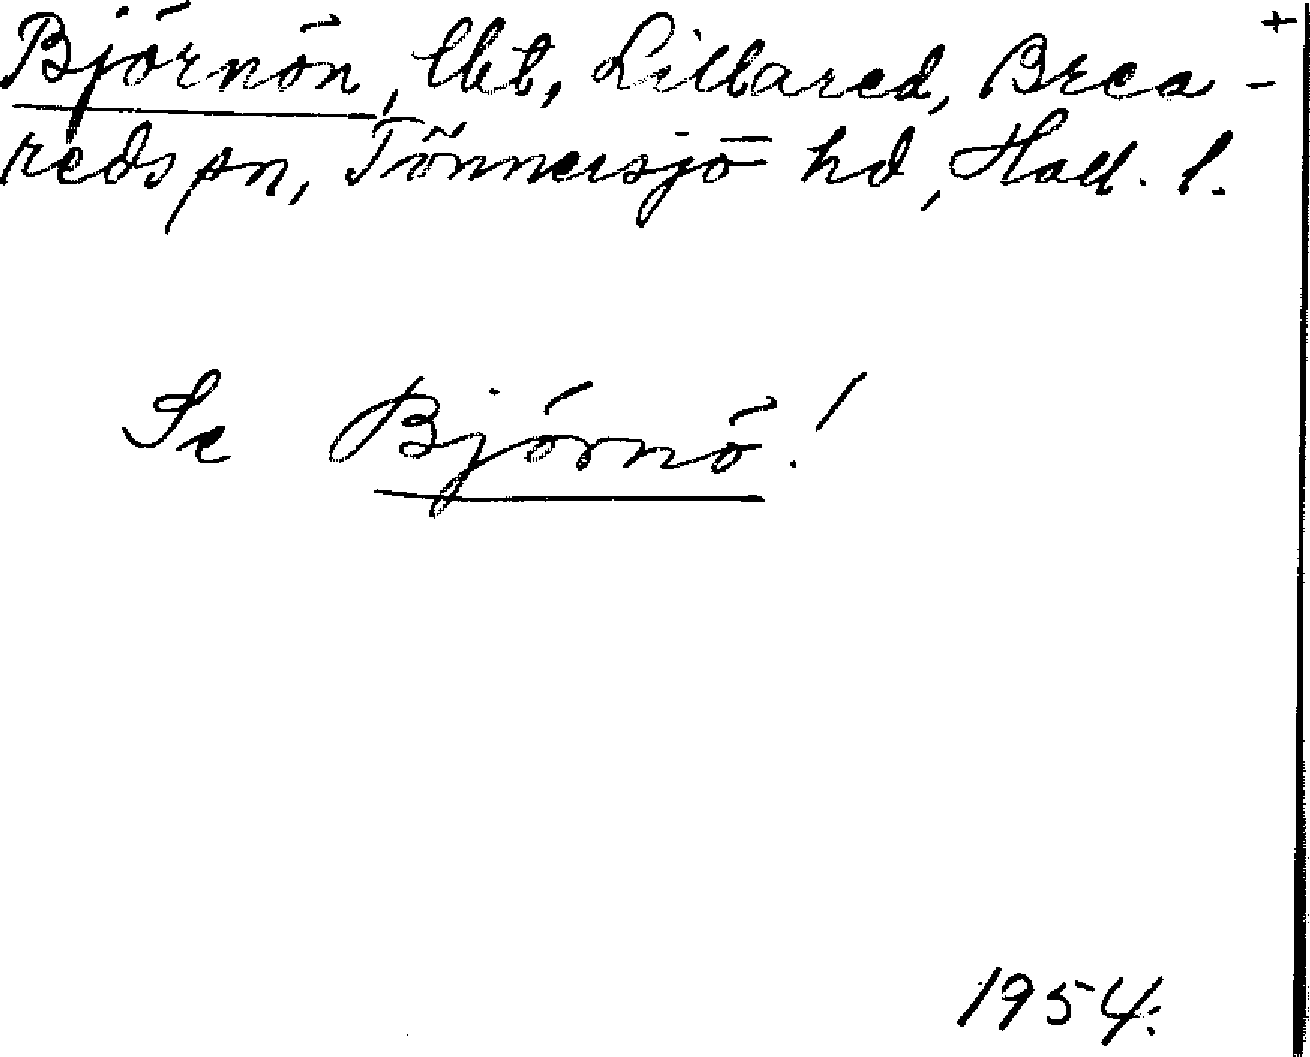 +
Björnön, lht, Lillared, Brea-
reds sn, Tönnersjö hd, Hall. l.
Se Björnö!
1954.